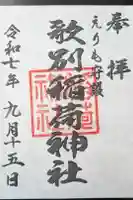 奉拝
えりも
歌別稲荷神社
令和七年 九月十五日